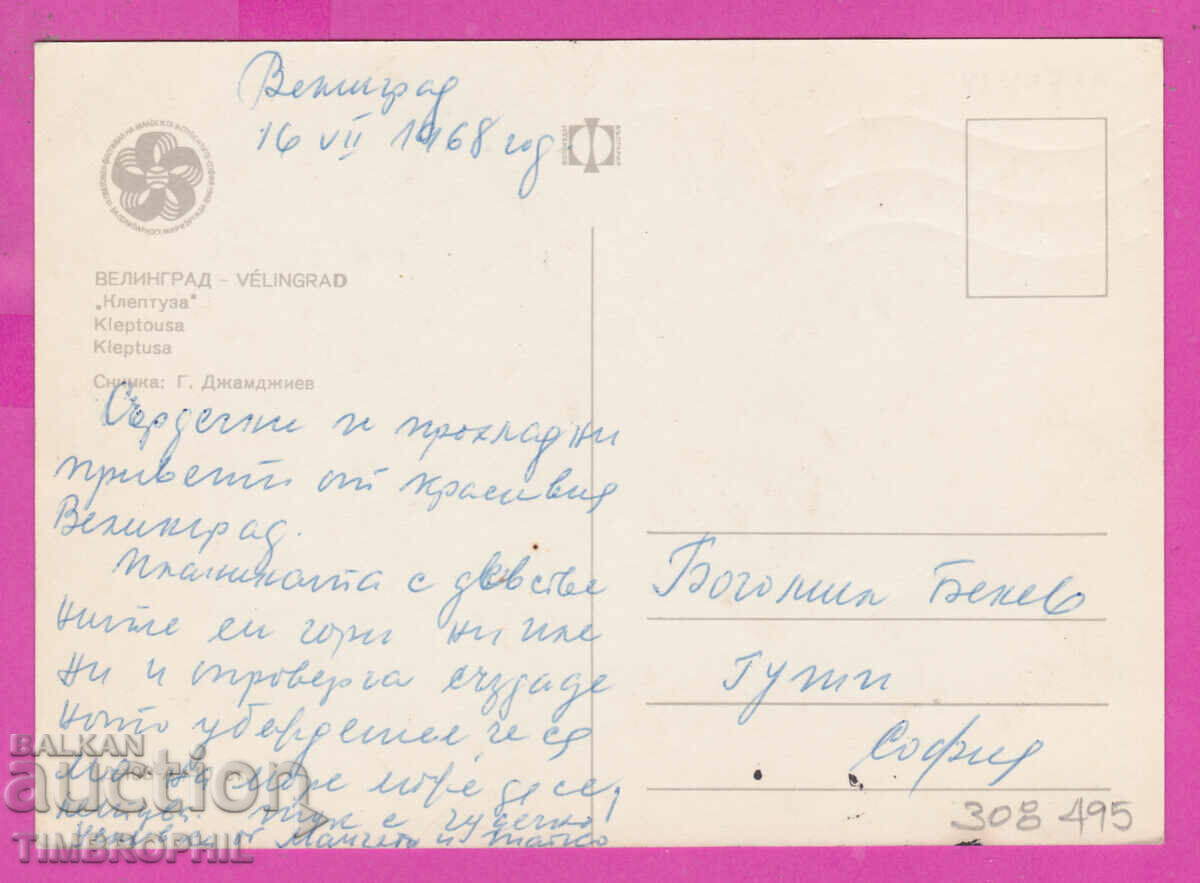 Велинград
16 VII 1968 год.
ВЕЛИНГРАД - VÉLINGRAD
„Клептуза"
Kleptousa
Kleptusa
Снимка: Г. Джамджиев
Сърдечни и прохладни
привети от красивия
Велинград.
Планината с девстве
ните си гори ни пле
ни и опроверга създаде
ното убеждение че са
мо на море може да се
тук е чудечно!
от Мамето и татко
Богомил Бенев
ГУТП
София
308 495
BALKAN
auction
TIMBROPHIL